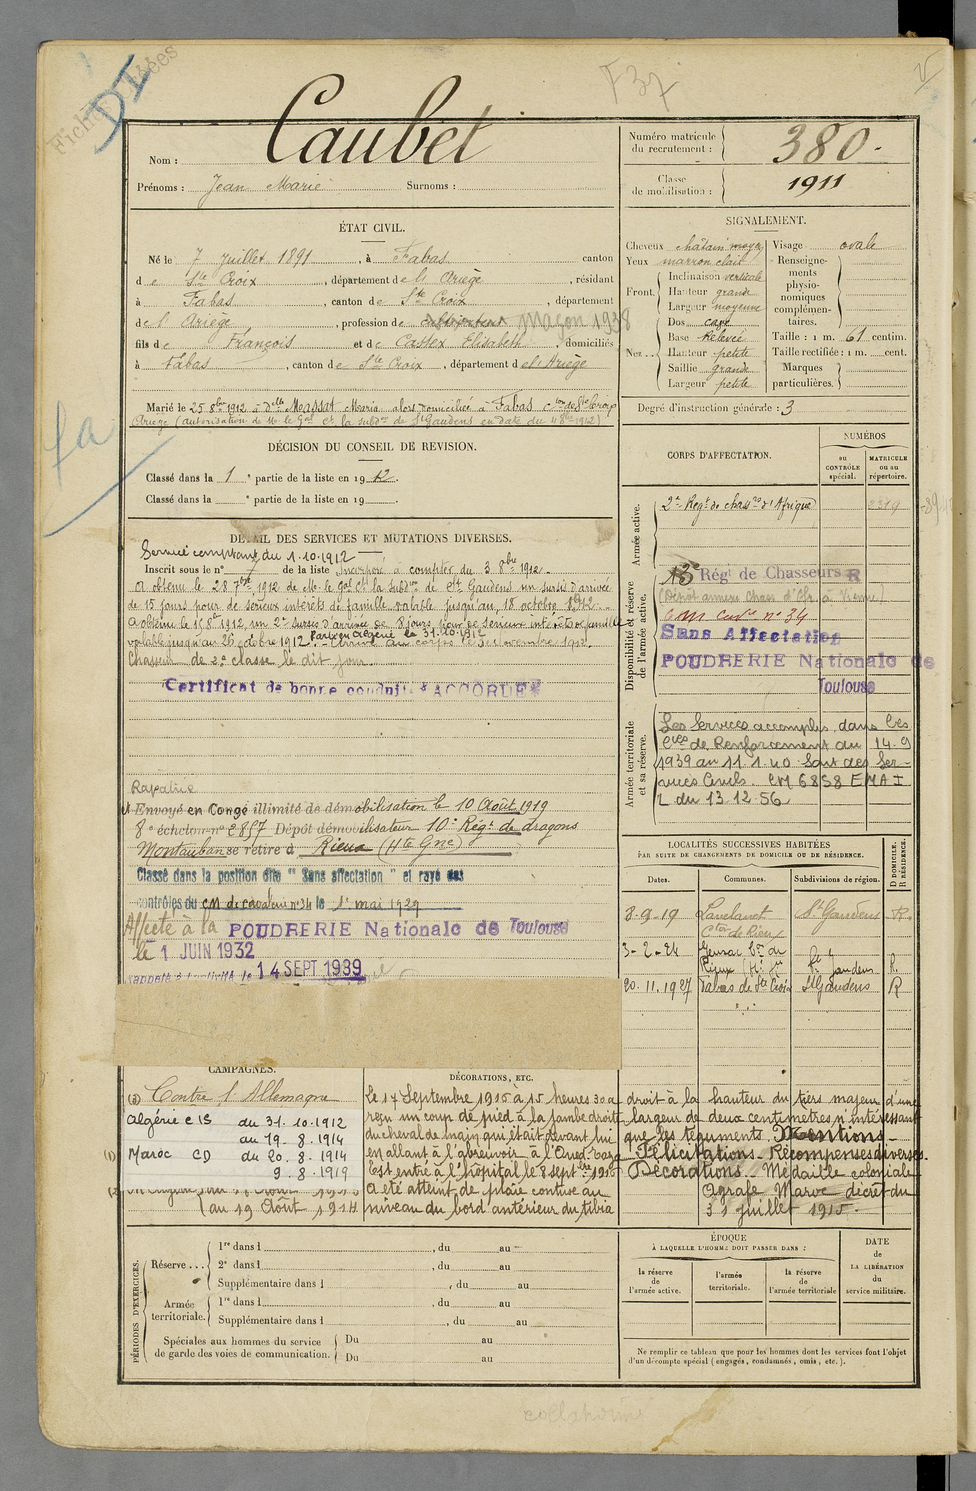 DI
F 37
Nom : Caubet
Prénoms : Jean Marie Surnoms :
Numéro matricule du recrutement : 380.
Classe de mobilisation : 1911
ÉTAT CIVIL.
Né le 7 juillet 1891, à Fabas canton
de Ste Croix, département de l'Ariège, résidant
à Fabas, canton de Ste Croix, département
de l'Ariège, profession de cultivateur Maçon 1938
fils de François et de Castex Elisabeth domiciliés
à Fabas, canton de Ste Croix, département de l'Ariège
Marié le 25 8bre 1912 à Dlle Massat Maria alors domiciliée à Fabas con de Ste Croix
Ariège (autorisation de Mr le Gal Ct la subdon de St Gaudens en date du 11 8bre 1912)
SIGNALEMENT.
Cheveux châtain moyen
Yeux marron clair
Front. Inclinaison verticale
Hauteur grande
Largeur moyenne
Nez. Dos cave
Base Relevée
Hauteur petite
Saillie grande
Largeur petite
Visage ovale
Renseignements physionomiques complémentaires.
Taille : 1 m. 61 centim.
Taille rectifiée : 1 m. cent.
Marques particulières.
Degré d'instruction générale : 3
fa
DÉCISION DU CONSEIL DE REVISION.
Classé dans la 1e partie de la liste en 1912.
Classé dans la e partie de la liste en 19 .
DÉTAIL DES SERVICES ET MUTATIONS DIVERSES.
Service comptant du 1.10.1912
Inscrit sous le n° 7 de la liste Incorporé à compter du 3 8bre 1912.
A obtenu le 28 7bre 1912 de Mr le gal Ct la subdon de St Gaudens un sursis d'arrivée
de 15 jours pour de sérieux intérêts de famille valable jusqu'au 18 octobre 1912.
A obtenu le 15 8bre 1912 un 2e sursis d'arrivée de 8 jours pour de sérieux intérêts de famille
valable jusqu'au 26 octobre 1912. Parti en Algérie le 31.10.1912 Arrivé au corps le 3 novembre 1912.
Chasseur de 2e classe le dit jour
Certificat de bonne conduite "ACCORDÉ"
Rapatrié
et Envoyé en Congé illimité de démobilisation le 10 Août 1919
8e échelon n° 2857 Dépôt démobilisateur 10e Régt de dragons
Montauban se retire à Rieux (Hte Gne)
Classé dans la position dite "Sans affectation" et rayé des
contrôles du CM de cavalerie n° 34 le 1er mai 1929
Affecté à la POUDRERIE Nationale de Toulouse
le 1 JUIN 1932
rappelé à l'activité le 14 SEPT 1939
CORPS D'AFFECTATION.
NUMÉROS
au CONTRÔLE spécial.
MATRICULE ou au répertoire.
Armée active.
2e Régt de chassrs d'Afrique
Disponibilité et réserve de l'armée active.
13e Régt de Chasseurs R
(Dépôt annexe Chass d'Afr. à Vienne)
CM Cavie n° 34
Sans Affectation
POUDRERIE Nationale de
Toulouse
Armée territoriale et sa réserve.
Les Services accomplis dans les
Cies de Renforcement du 14.9
1939 au 11.1.40 sont des Ser-
vices Civils. CM 6858 EMA I
L du 13.12.56
LOCALITÉS SUCCESSIVES HABITÉES
PAR SUITE DE CHANGEMENTS DE DOMICILE OU DE RÉSIDENCE.
Dates. Communes. Subdivisions de région. D DOMICILE. R RÉSIDENCE.
8-9-19 Lavelanet Cton de Rieux St Gaudens R.
3-2-24 Gensac Con de Rieux St Gaudens R.
20.11.1927 Fabas de Ste Croix St Gaudens R
CAMPAGNES.
Contre l'Allemagne
Algérie CIS du 31.10.1912
au 19.8.1914
Maroc CD du 20.8.1914
9.8.1919
au 19 Août 1914
DÉCORATIONS, ETC.
Le 17 Septembre 1915 à 15 heures 30 a
reçu un coup de pied à la jambe droite
du cheval de main qui était devant lui
en allant à l'abreuvoir à l'Oued Taza
Est entré à l'hôpital le 8 septbre 1915
A été atteint de plaie contuse au
niveau du bord antérieur du tibia
droit à la hauteur du tiers moyen d'une
largeur de deux centimètres n'intéressant
que les téguments. Mentions
Félicitations. Récompenses diverses.
Décorations. Médaille coloniale
Agrafe Maroc décret du
31 juillet 1915.
PÉRIODES D'EXERCICES.
Réserve ... 1re dans l , du au
2e dans l , du au
Supplémentaire dans l , du au
Armée territoriale. 1re dans l , du au
Supplémentaire dans l , du au
Spéciales aux hommes du service de garde des voies de communication. Du au
Du au
ÉPOQUE
À LAQUELLE L'HOMME DOIT PASSER DANS :
la réserve de l'armée active.
l'armée territoriale.
la réserve de l'armée territoriale
DATE de LA LIBÉRATION du service militaire.
Ne remplir ce tableau que pour les hommes dont les services font l'objet
d'un décompte spécial (engagés, condamnés, omis, etc.).